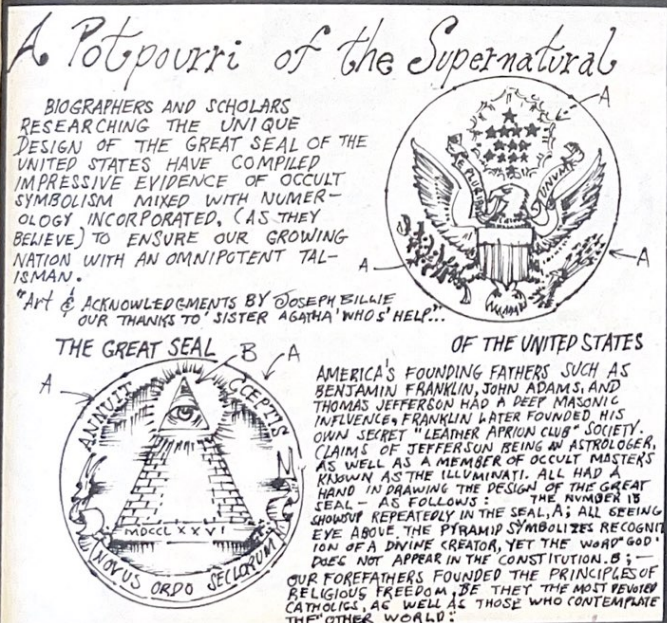 A Potpourri of the Supernatural
BIOGRAPHERS AND SCHOLARS
RESEARCHING THE UNIQUE
DESIGN OF THE GREAT SEAL OF THE
UNITED STATES HAVE COMPILED
IMPRESSIVE EVIDENCE OF OCCULT
SYMBOLISM MIXED WITH NUMER-
OLOGY INCORPORATED, (AS THEY
BELIEVE) TO ENSURE OUR GROWING
NATION WITH AN OMNIPOTENT TAL-
ISMAN.
"Art & ACKNOWLEDGMENTS BY JOSEPH BILLIE
OUR THANKS TO 'SISTER AGATHA' WHO S' HELP"...
A
E PLURIBUS UNUM
A
A
THE GREAT SEAL
OF THE UNITED STATES
B
A
A
ANNUIT CŒEPTIS
MDCCLXXVI
NOVUS ORDO SECLORUM
AMERICA'S FOUNDING FATHERS SUCH AS
BENJAMIN FRANKLIN, JOHN ADAMS, AND
THOMAS JEFFERSON HAD A DEEP MASONIC
INFLUENCE, FRANKLIN LATER FOUNDED HIS
OWN SECRET "LEATHER APRION CLUB" SOCIETY.
CLAIMS OF JEFFERSON BEING AN ASTROLOGER,
AS WELL AS A MEMBER OF OCCULT MASTERS
KNOWN AS THE ILLUMINATI. ALL HAD A
HAND IN DRAWING THE DESIGN OF THE GREAT
SEAL - AS FOLLOWS: THE NUMBER 13
SHOWSUP REPEATEDLY IN THE SEAL, A; ALL SEEING
EYE ABOVE THE PYRAMID SYMBOLIZES RECOGNIT
ION OF A DIVINE CREATOR, YET THE WORD "GOD"
DOES NOT APPEAR IN THE CONSTITUTION. B; —
OUR FOREFATHERS FOUNDED THE PRINCIPLES OF
RELIGIOUS FREEDOM, BE THEY THE MOST DEVOTED
CATHOLICS, AS WELL AS THOSE WHO CONTEMPLATE
THE "OTHER WORLD."